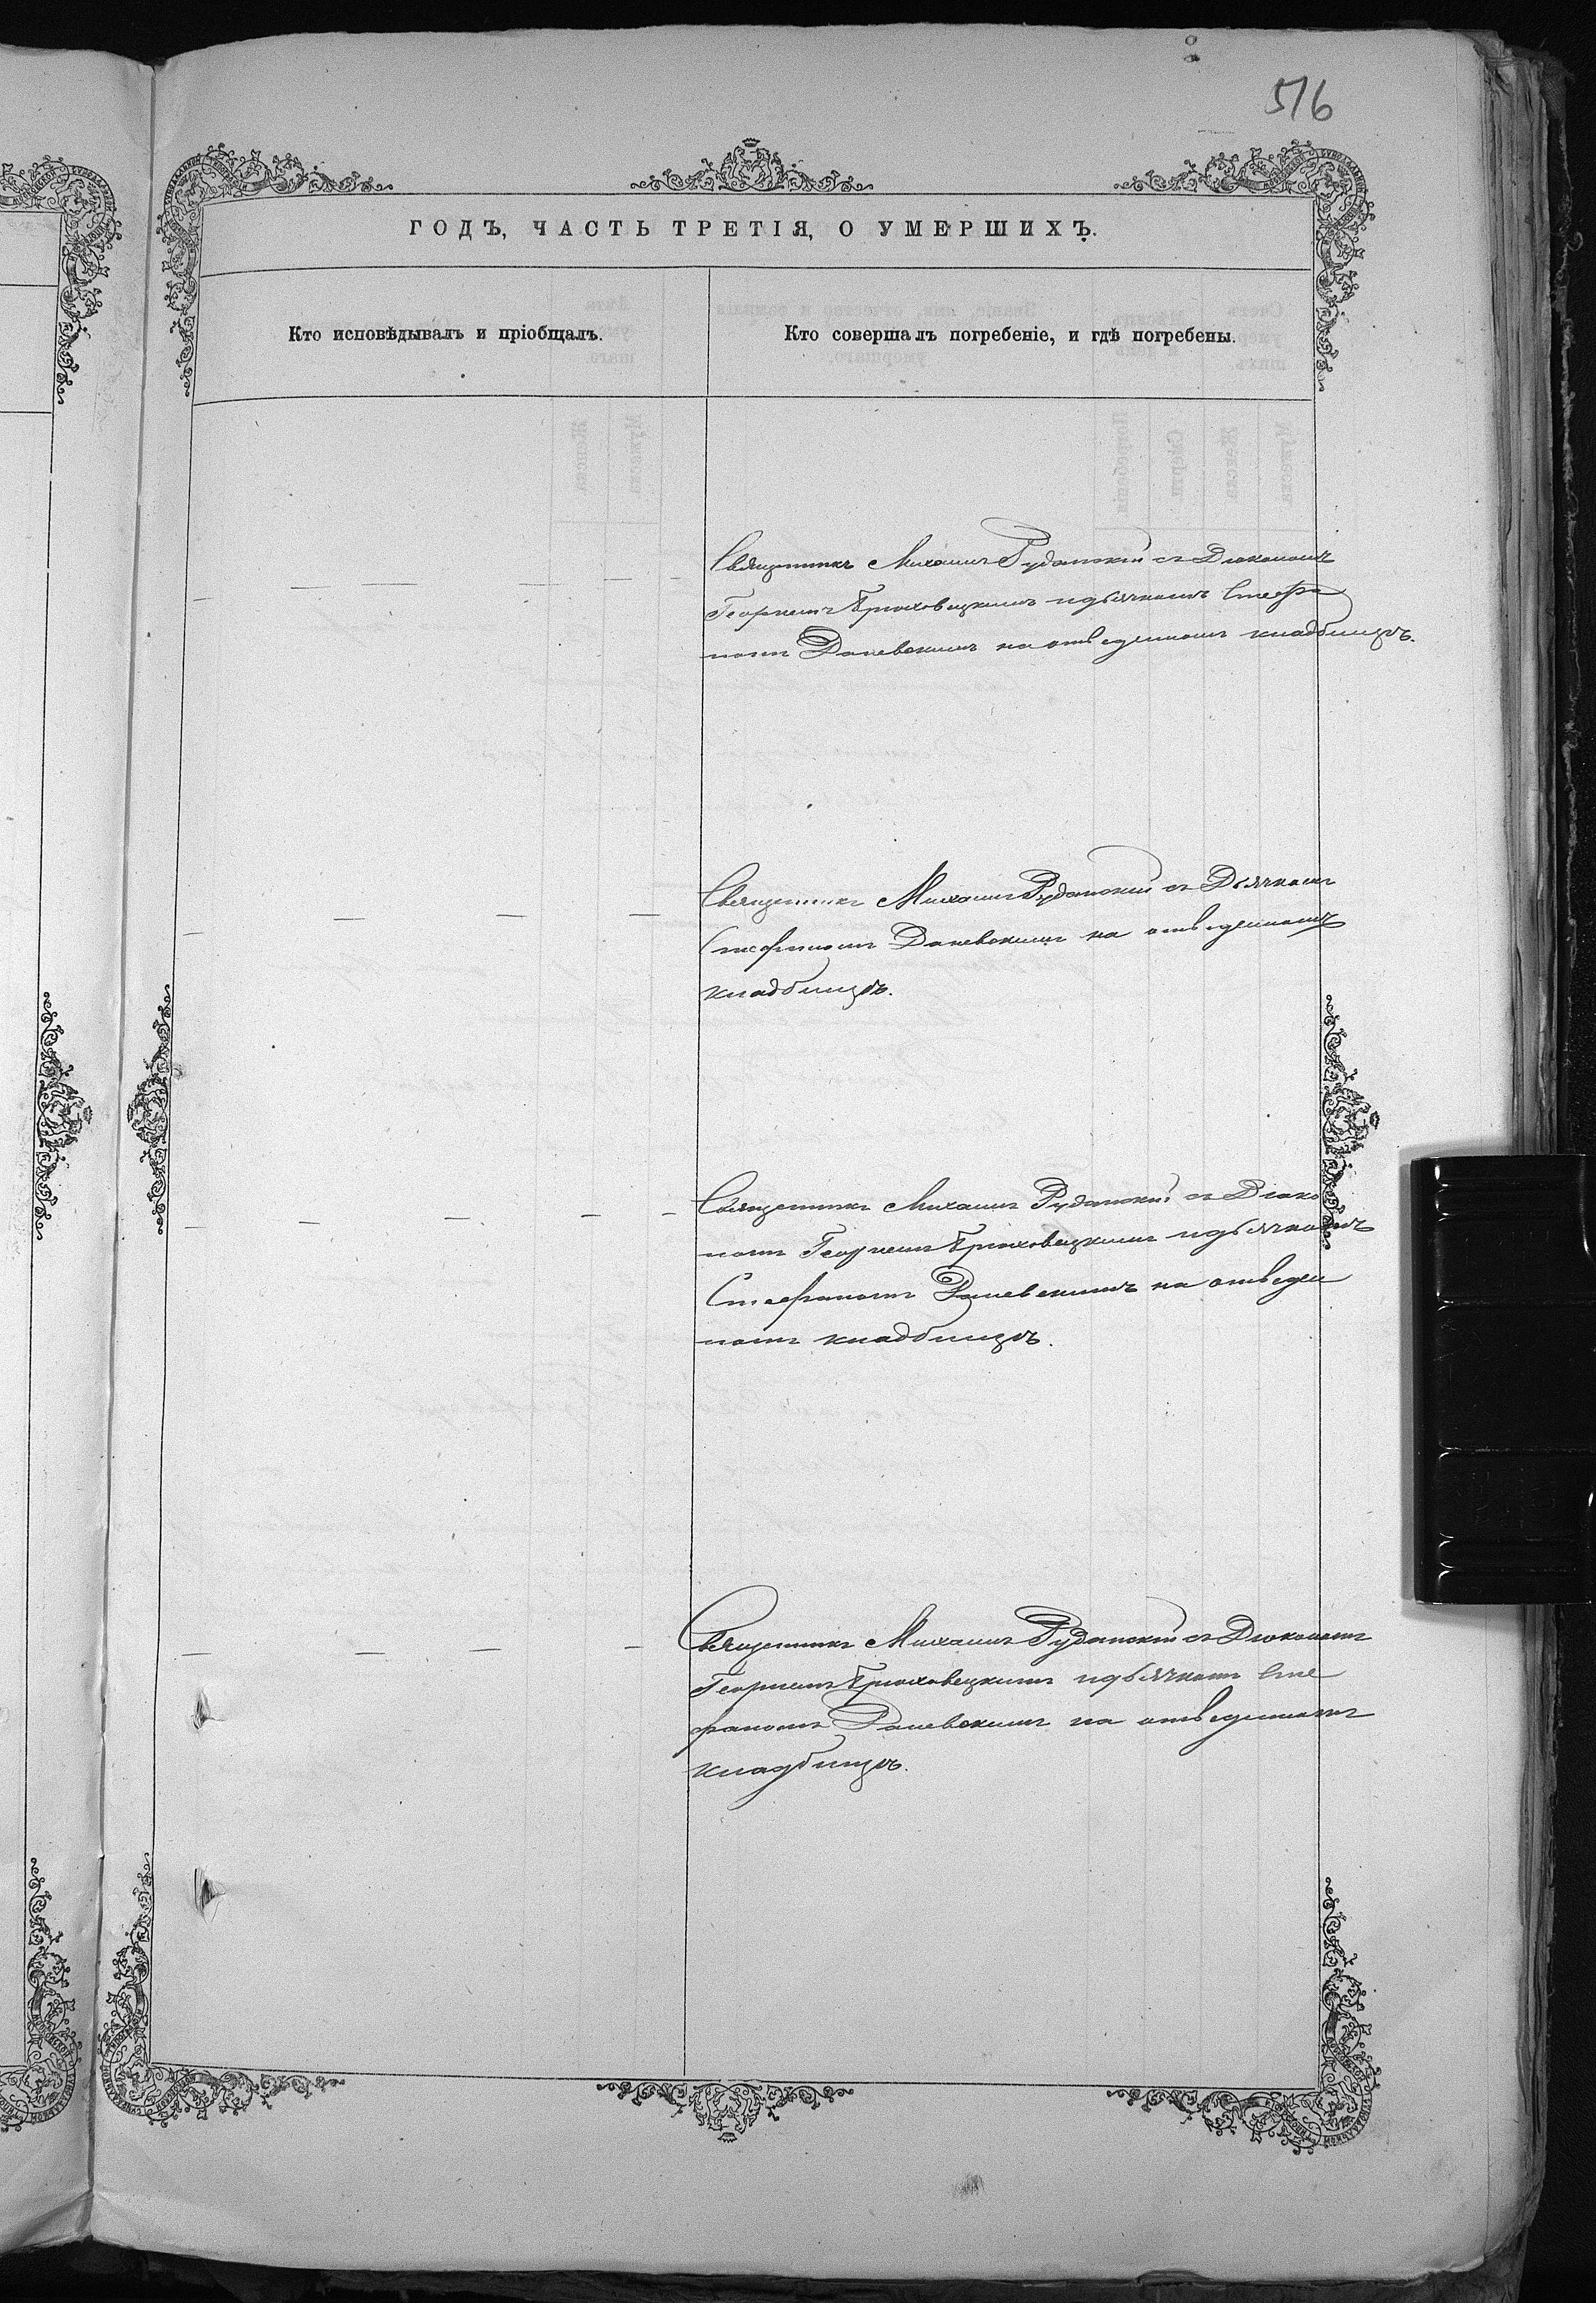 516
ГОДЪ, ЧАСТЬ ТРЕТІЯ, О УМЕРШИХЪ.
Кто исповѣдывалъ и пріобщалъ.
Кто совершалъ погребеніе, и гдѣ погребены.
Священникъ Михаилъ Руданскій съ Діакономъ
Георгіемъ Брюховецкимъ и дьячкомъ Стефа
номъ Даневскимъ на отведенномъ кладбищѣ.
Священникъ Михаилъ Руданскій съ Дьячкомъ
Стефаномъ Даневскимъ на отведенномъ
кладбищѣ.
Священникъ Михаилъ Руданскій съ Діако
номъ Георгіемъ Брюховецкимъ и дьячкомъ
Стефаномъ Даневскимъ на отведен
номъ кладбищѣ.
Священникъ Михаилъ Руданскій съ Діакономъ
Георгіемъ Брюховецкимъ и дьячкомъ Сте
фаномъ Даневскимъ на отведенномъ
кладбищѣ.